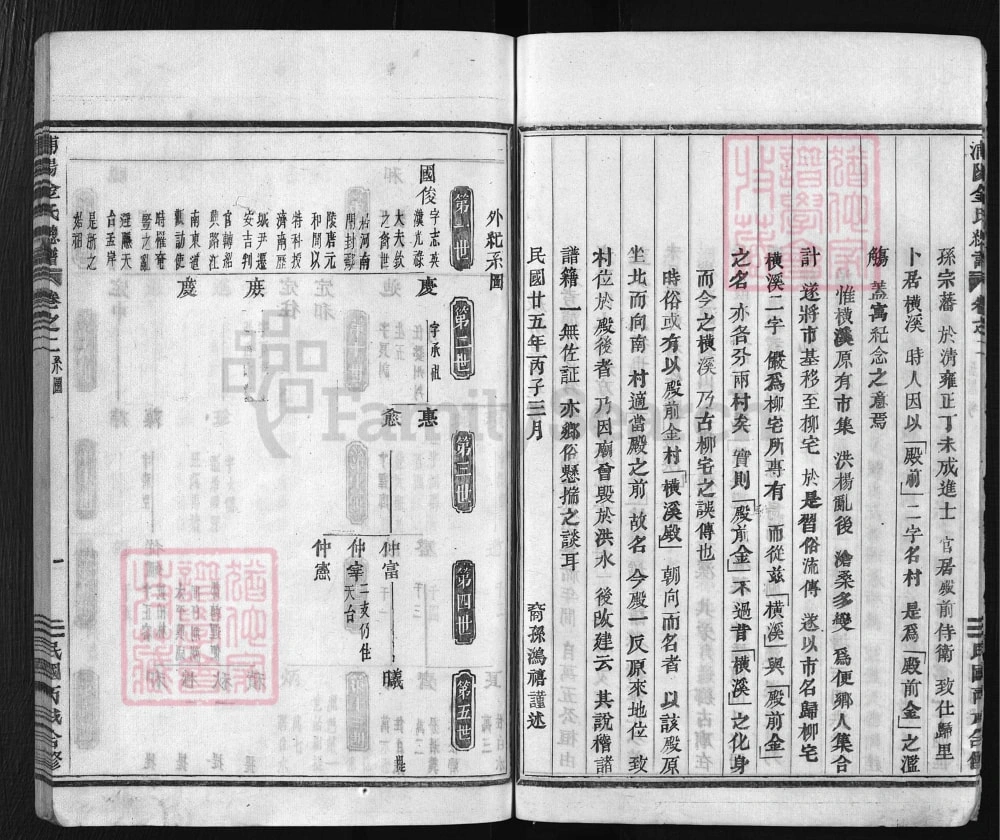 孫宗藩 於清雍正丁未成進士 官居殿前侍衛 致仕歸里
卜居橫溪 時人因以「殿前」二字名村 是爲「殿前金」之濫
觴 蓋寓紀念之意焉
惟橫溪原有市集 洪楊亂後 滄桑多變 爲便鄉人集合
計 遂將市基移至柳宅 於是習俗流傳 遂以市名歸柳宅
橫溪二字 儼爲柳宅所專有 而從茲「橫溪」與「殿前金」
之名 亦各分兩村矣 實則「殿前金」不過昔「橫溪」之化身
而今之橫溪乃古柳宅之誤傳也
時俗或有以殿前金村「橫溪殿」朝向而名者 以該殿原
坐北而向南 村適當殿之前 故名 今殿一反原來地位 致
村位於殿後者 乃因廟曾毀於洪水 後改建云 其說稽諸
譜籍 一無佐証 亦鄉俗懸揣之談耳
裔孫鴻禧謹述
民國廿五年丙子三月
外紀系圖
第一世
第二世
第三世
第四世
第五世
國俊
字志英
漢光祿
大夫欽
之裔世
居河南
開封鄢
陵唐元
和間以
特科授
濟南歷
城尹遷
安吉判
官轉紹
興路江
南東道
勸訪使
時罹奇
豎之亂
避隱天
台孟岸
是浙之
始祖
慶
字承祖
㦂
慶
惠
愈
仲富
仲宰
二支仍住
天台
仲憲
曦
浦陽金氏總譜
卷之二
系圖
一
民國丙戌合修
猶他家譜學會特藏
猶他家譜學會特藏
FamilySearch